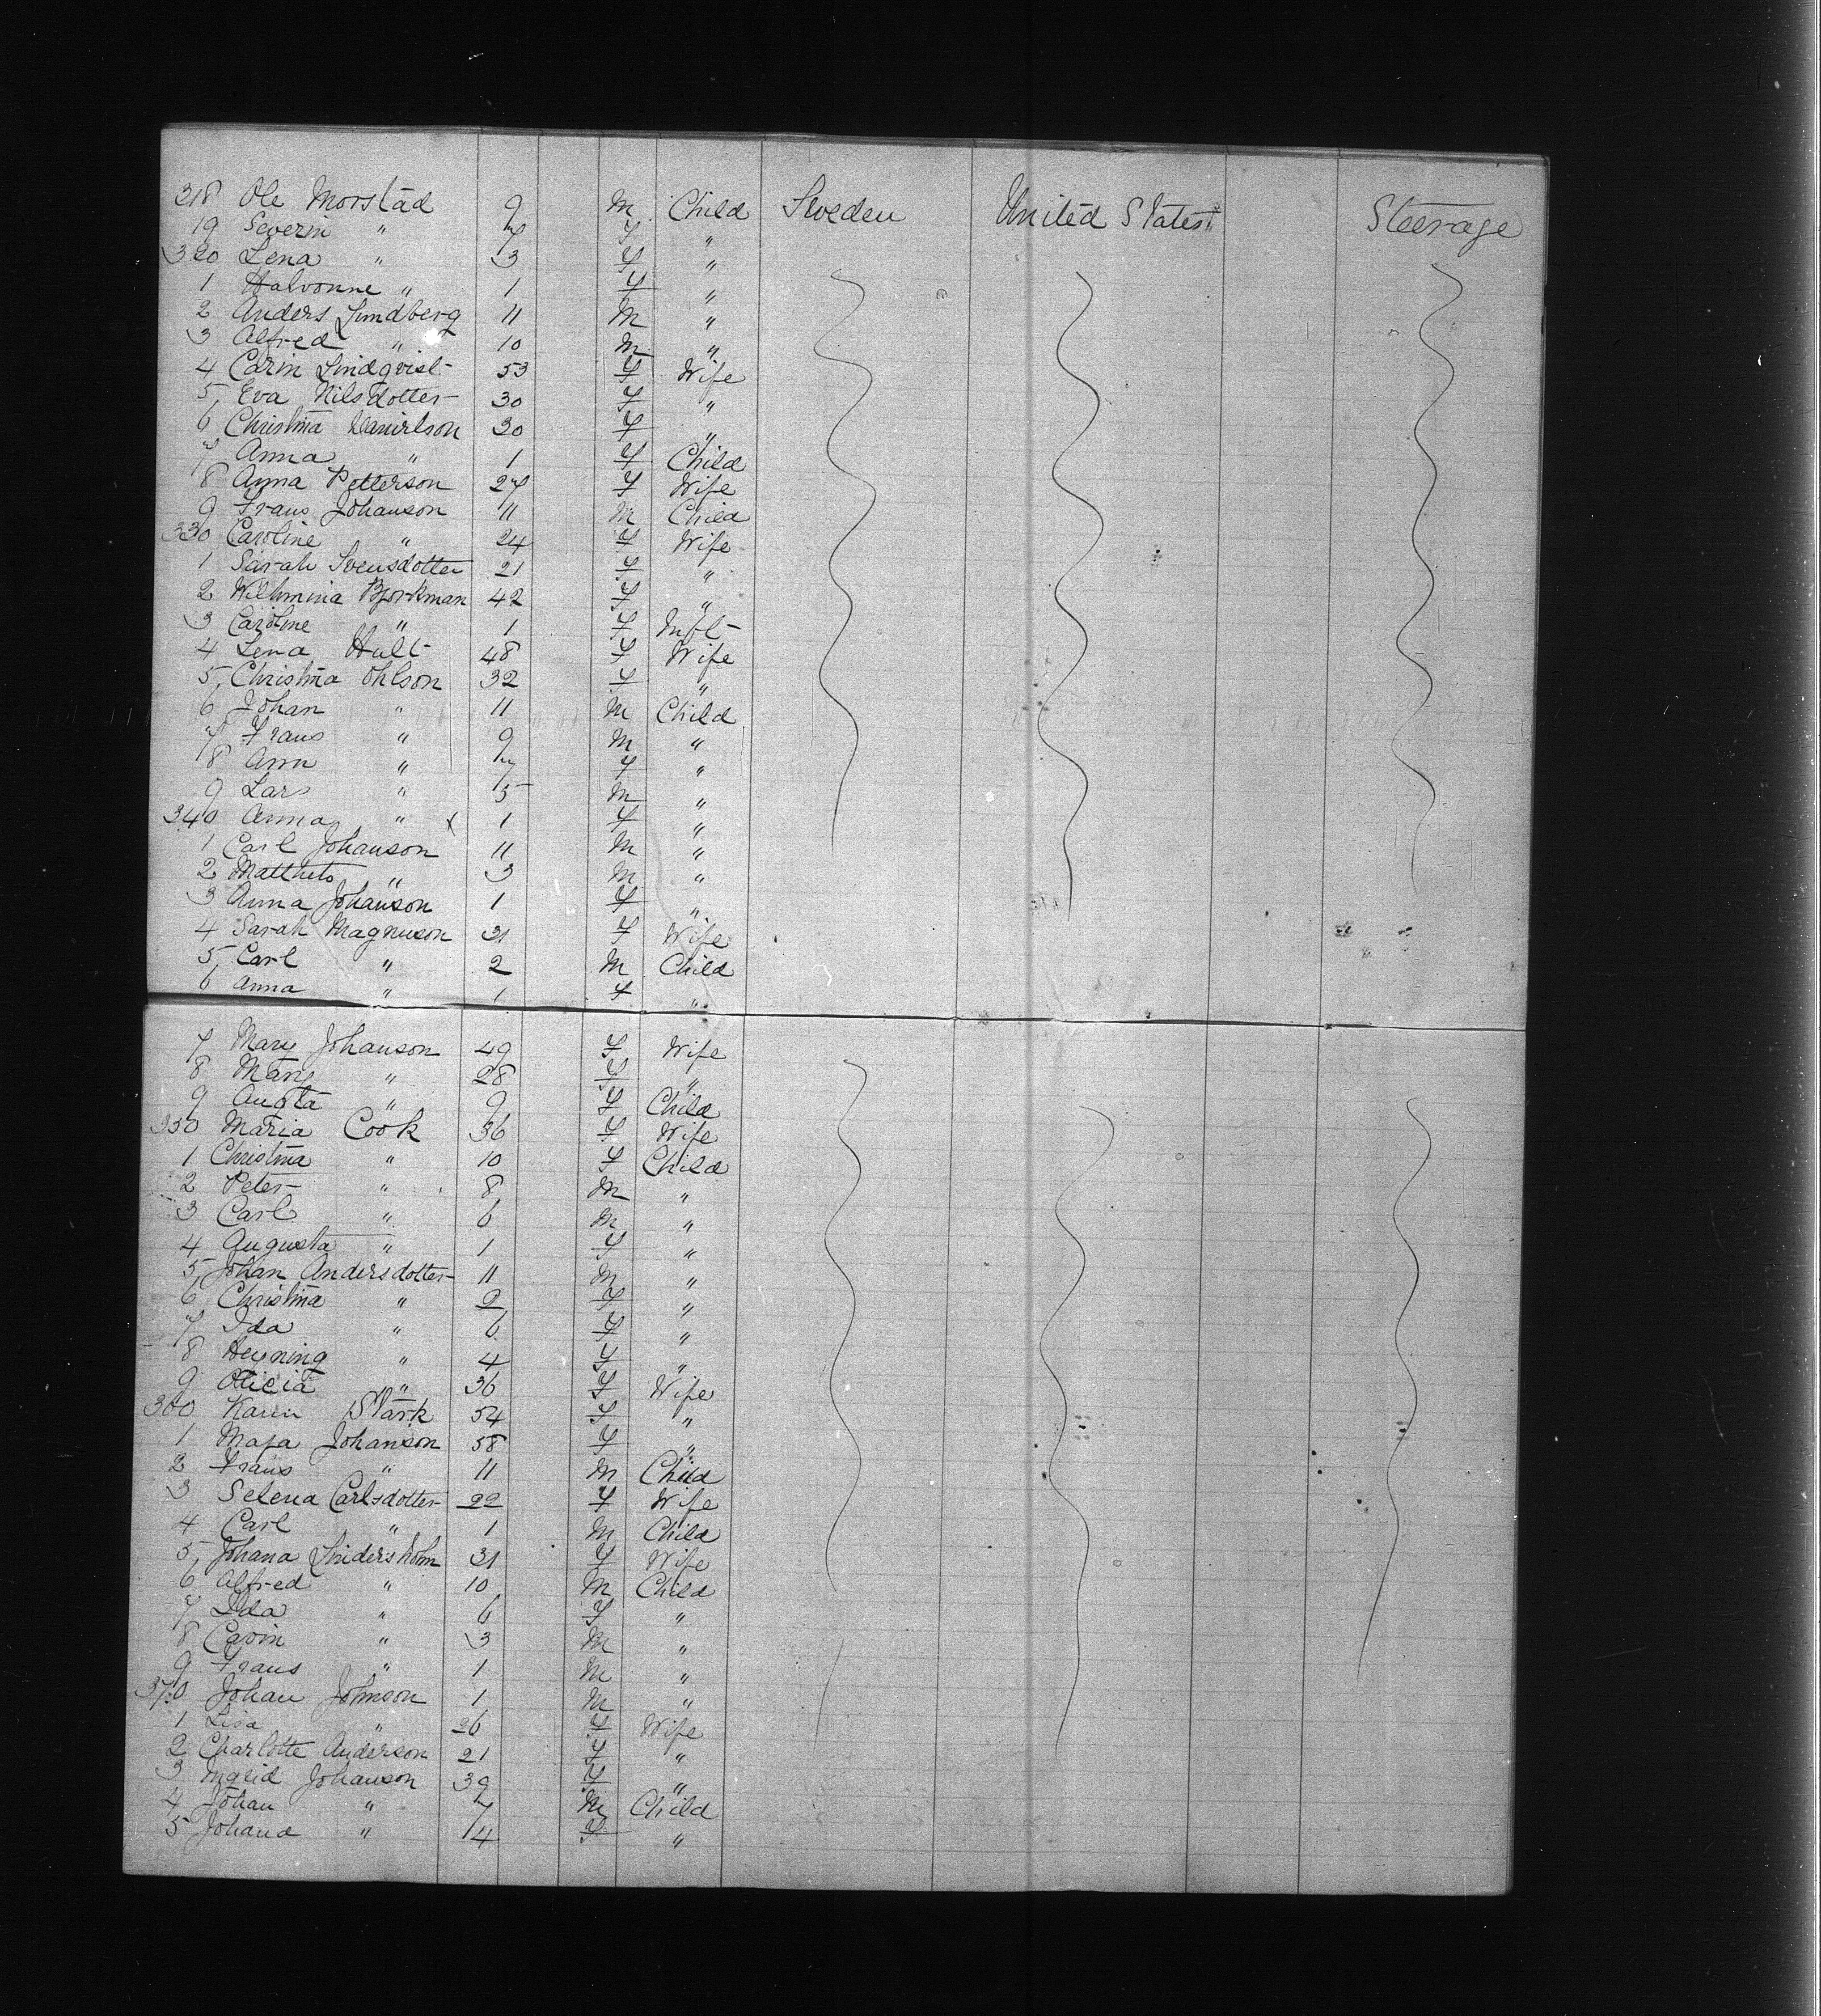 318 Ole Morstad 9 M Child Sweden United States Steerage
19 Severin " 7 F "
320 Lena " 3 F "
1 Halvonne " 1 F "
2 Anders Lindberg 11 M "
3 Alfred " 10 M "
4 Carin Lindqvist 53 F Wife
5 Eva Nilsdotter 30 F "
6 Christina Danielson 30 F "
7 Anna " 1 F Child
8 Anna Petterson 27 F Wife
9 Frans Johanson 11 M Child
330 Caroline " 24 F Wife
1 Sarah Svensdotter 21 F "
2 Wilhmina Bjorkman 42 F "
3 Caroline " 1 F Inft
4 Lena Hult 48 F Wife
5 Christina Ohlson 32 F "
6 Johan " 11 M Child
7 Frans " 9 M "
8 Ann " 7 F "
9 Lars " 5 M "
340 Anna " x 1 F "
1 Carl Johanson 11 M "
2 " 3 M "
3 Anna Johanson 1 F "
4 Sarah Magnuson 31 F Wife
5 Carl " 2 M Child
6 Anna " 1 F "
7 Mary Johanson 49 F Wife
8 Mary " 28 F "
9 Augta " 9 F Child
350 Maria Cook 36 F Wife
1 Christina " 10 F Child
2 Peter " 8 M "
3 Carl " 6 M "
4 Augusta " 1 F "
5 Johan Andersdotter 11 M "
6 Christina " 9 F "
7 Ida " 6 F "
8 Heyning " 4 F "
9 " 36 F Wife
360 Karin Stark 54 F "
1 Maja Johanson 58 F "
2 Frans " 11 M Child
3 Selena Carlsdotter 22 F Wife
4 Carl " 1 M Child
5 Johana Lindersholm 31 F Wife
6 Alfred " 10 M Child
7 Ida " 6 F "
8 Carin " 3 M "
9 Frans " 1 M "
370 Johan Johnson 1 M "
1 Lisa " 26 F Wife
2 Charlotte Anderson 21 F "
3 Ingrid Johanson 39 F "
4 Johan " 7 M Child
5 Johana " 4 F "